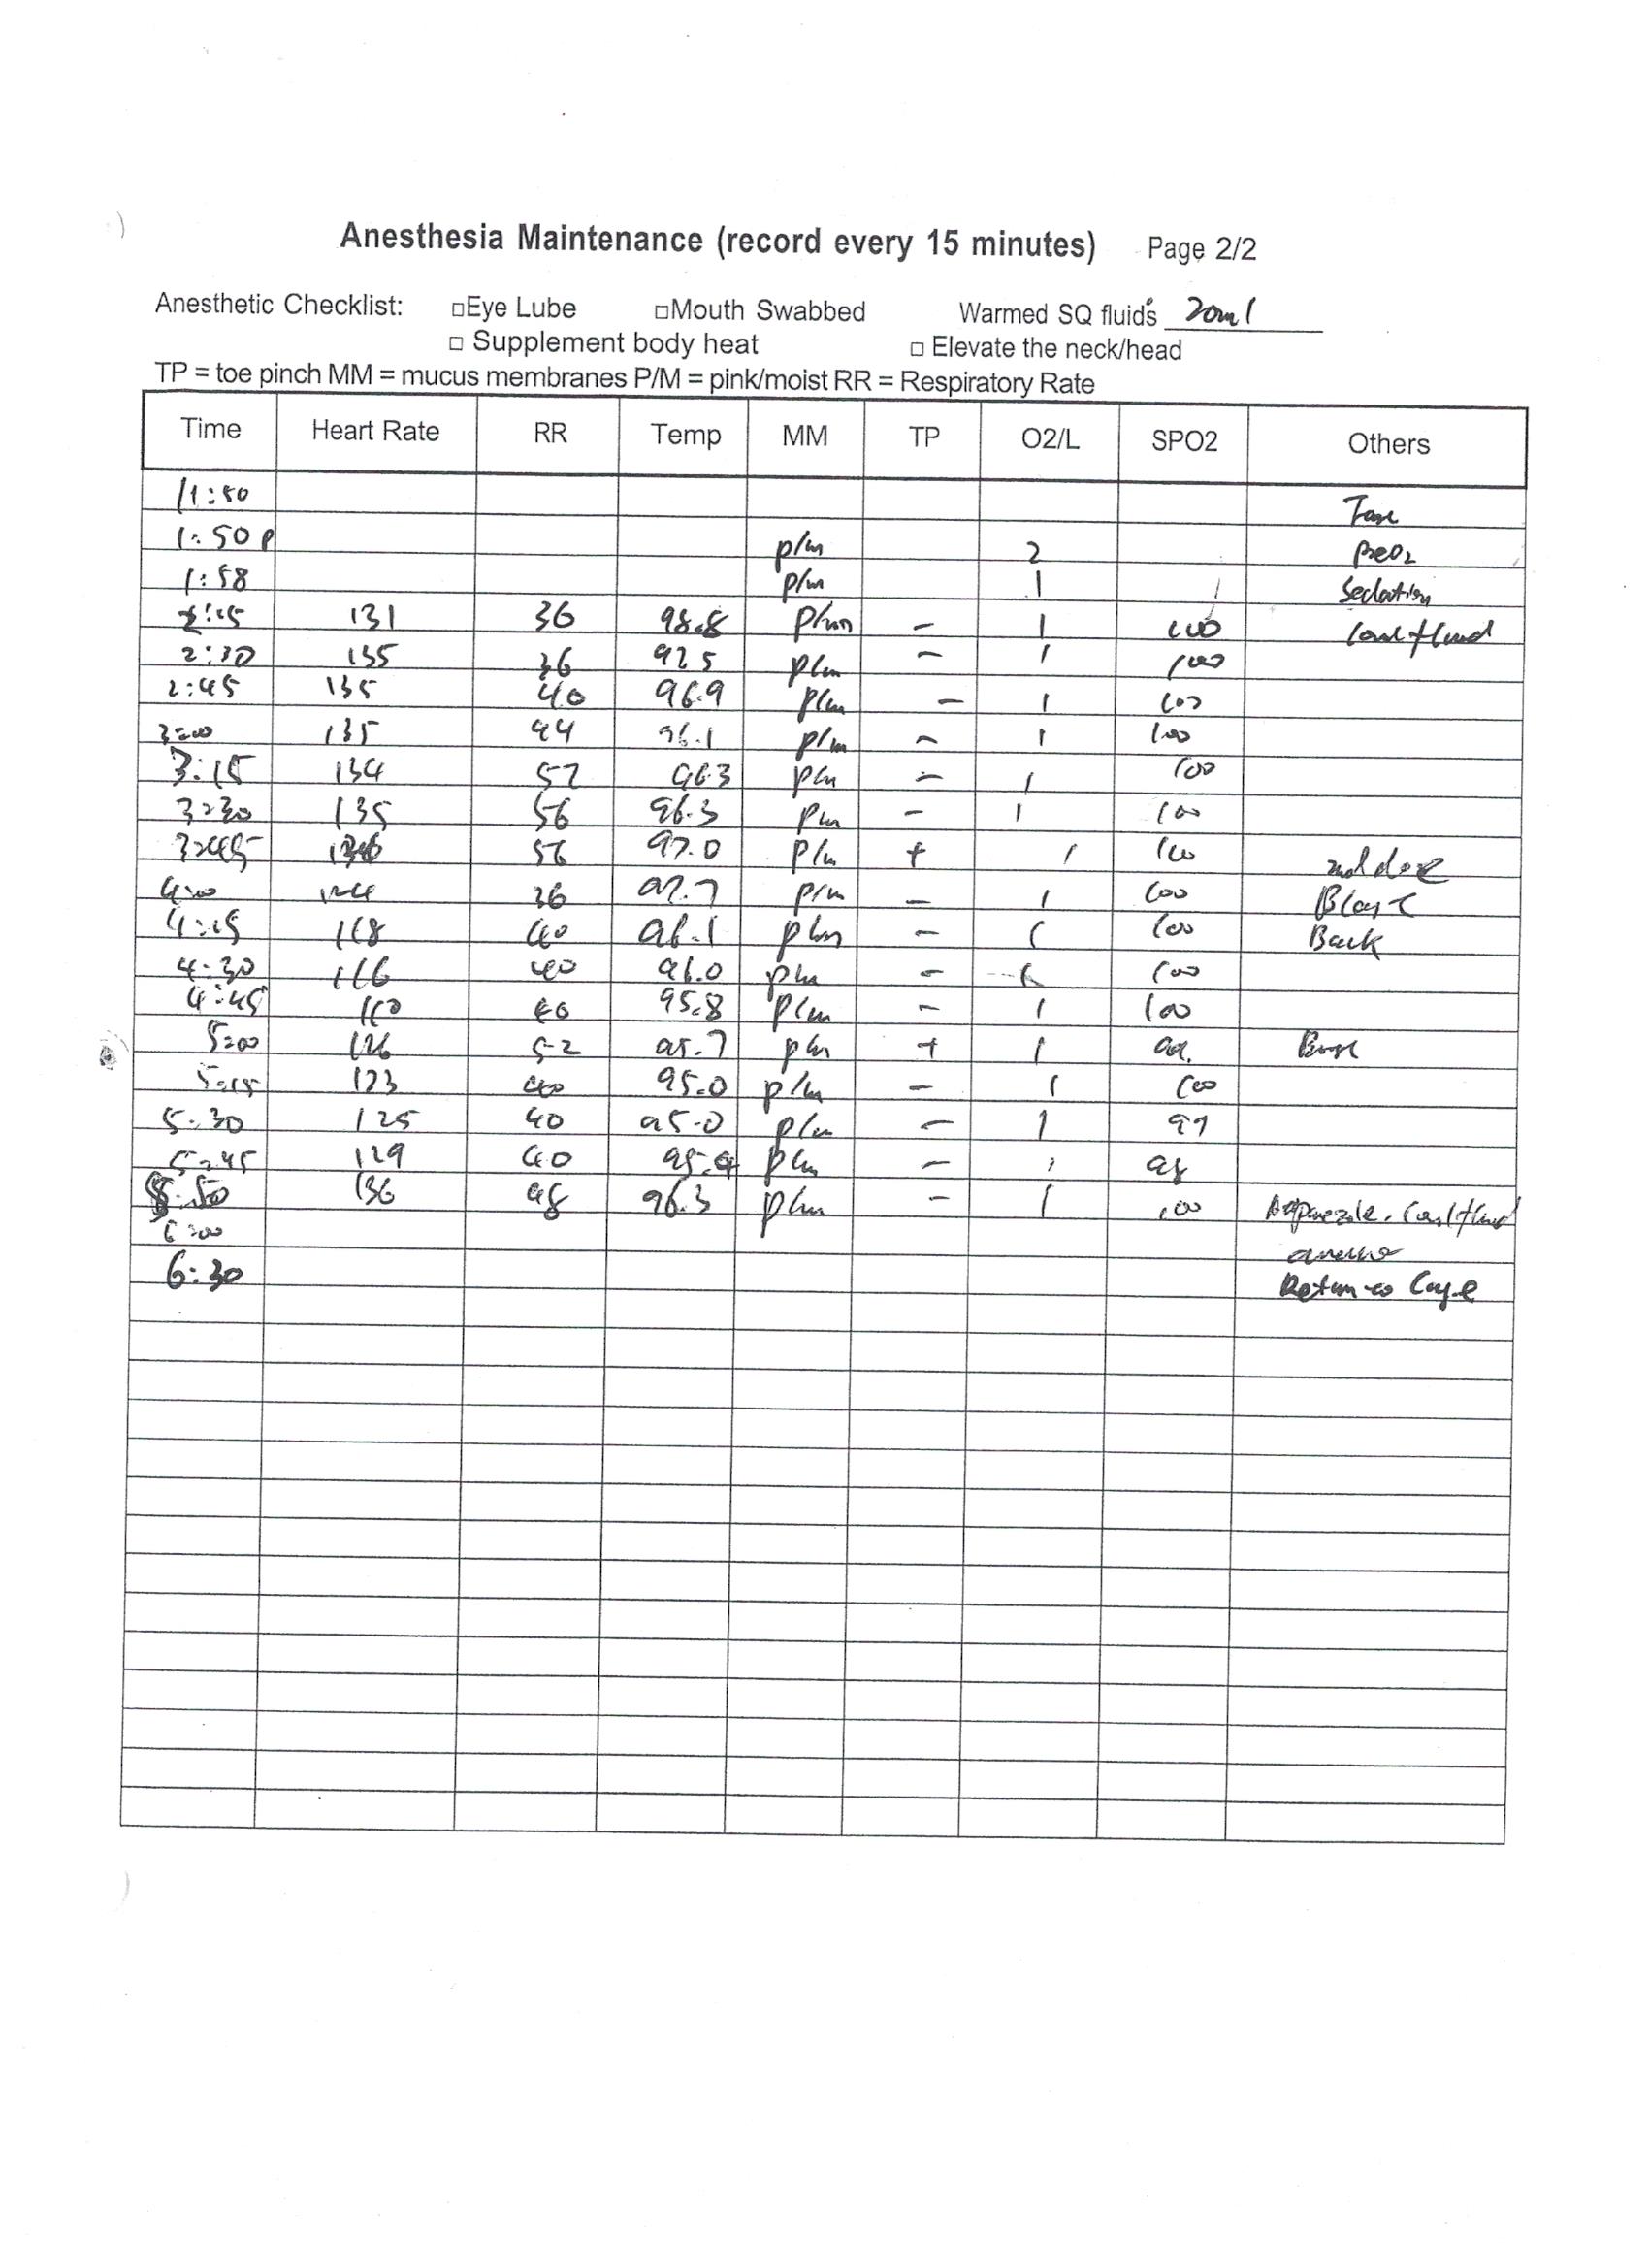 Anesthesia Maintenance (record every 15 minutes) Page 2/2
Anesthetic Checklist: □Eye Lube □Mouth Swabbed Warmed SQ fluids 20ml
□ Supplement body heat □ Elevate the neck/head
TP = toe pinch MM = mucus membranes P/M = pink/moist RR = Respiratory Rate
Time Heart Rate RR Temp MM TP O2/L SPO2 Others
11:50
1:50 p p/m 2 preO2
1:58 p/m 1 Sedation
2:15 131 36 98.8 p/m - 1 100
2:30 135 36 p/m - 1 100
2:45 135 40 96.9 p/m - 1 100
3:00 135 44 96.1 p/m - 1 100
3:15 134 52 96.3 p/m - 1 100
3:30 135 56 96.3 p/m - 1 100
3:45 56 97.0 p/m + 1 100 2nd dose
4:00 36 97.7 p/m - 1 100
4:15 118 40 96.1 p/m - 1 100 Back
4:30 116 40 96.0 p/m - 1 100
4:45 110 40 95.8 p/m - 1 100
5:00 126 52 95.7 p/m + 1
5:15 123 40 95.0 p/m - 1 100
5:30 125 40 95.0 p/m - 1
5:45 129 40 p/m - 1 98
5:50 136 48 96.3 p/m - 1 100
6:00
6:30 Return to Cage